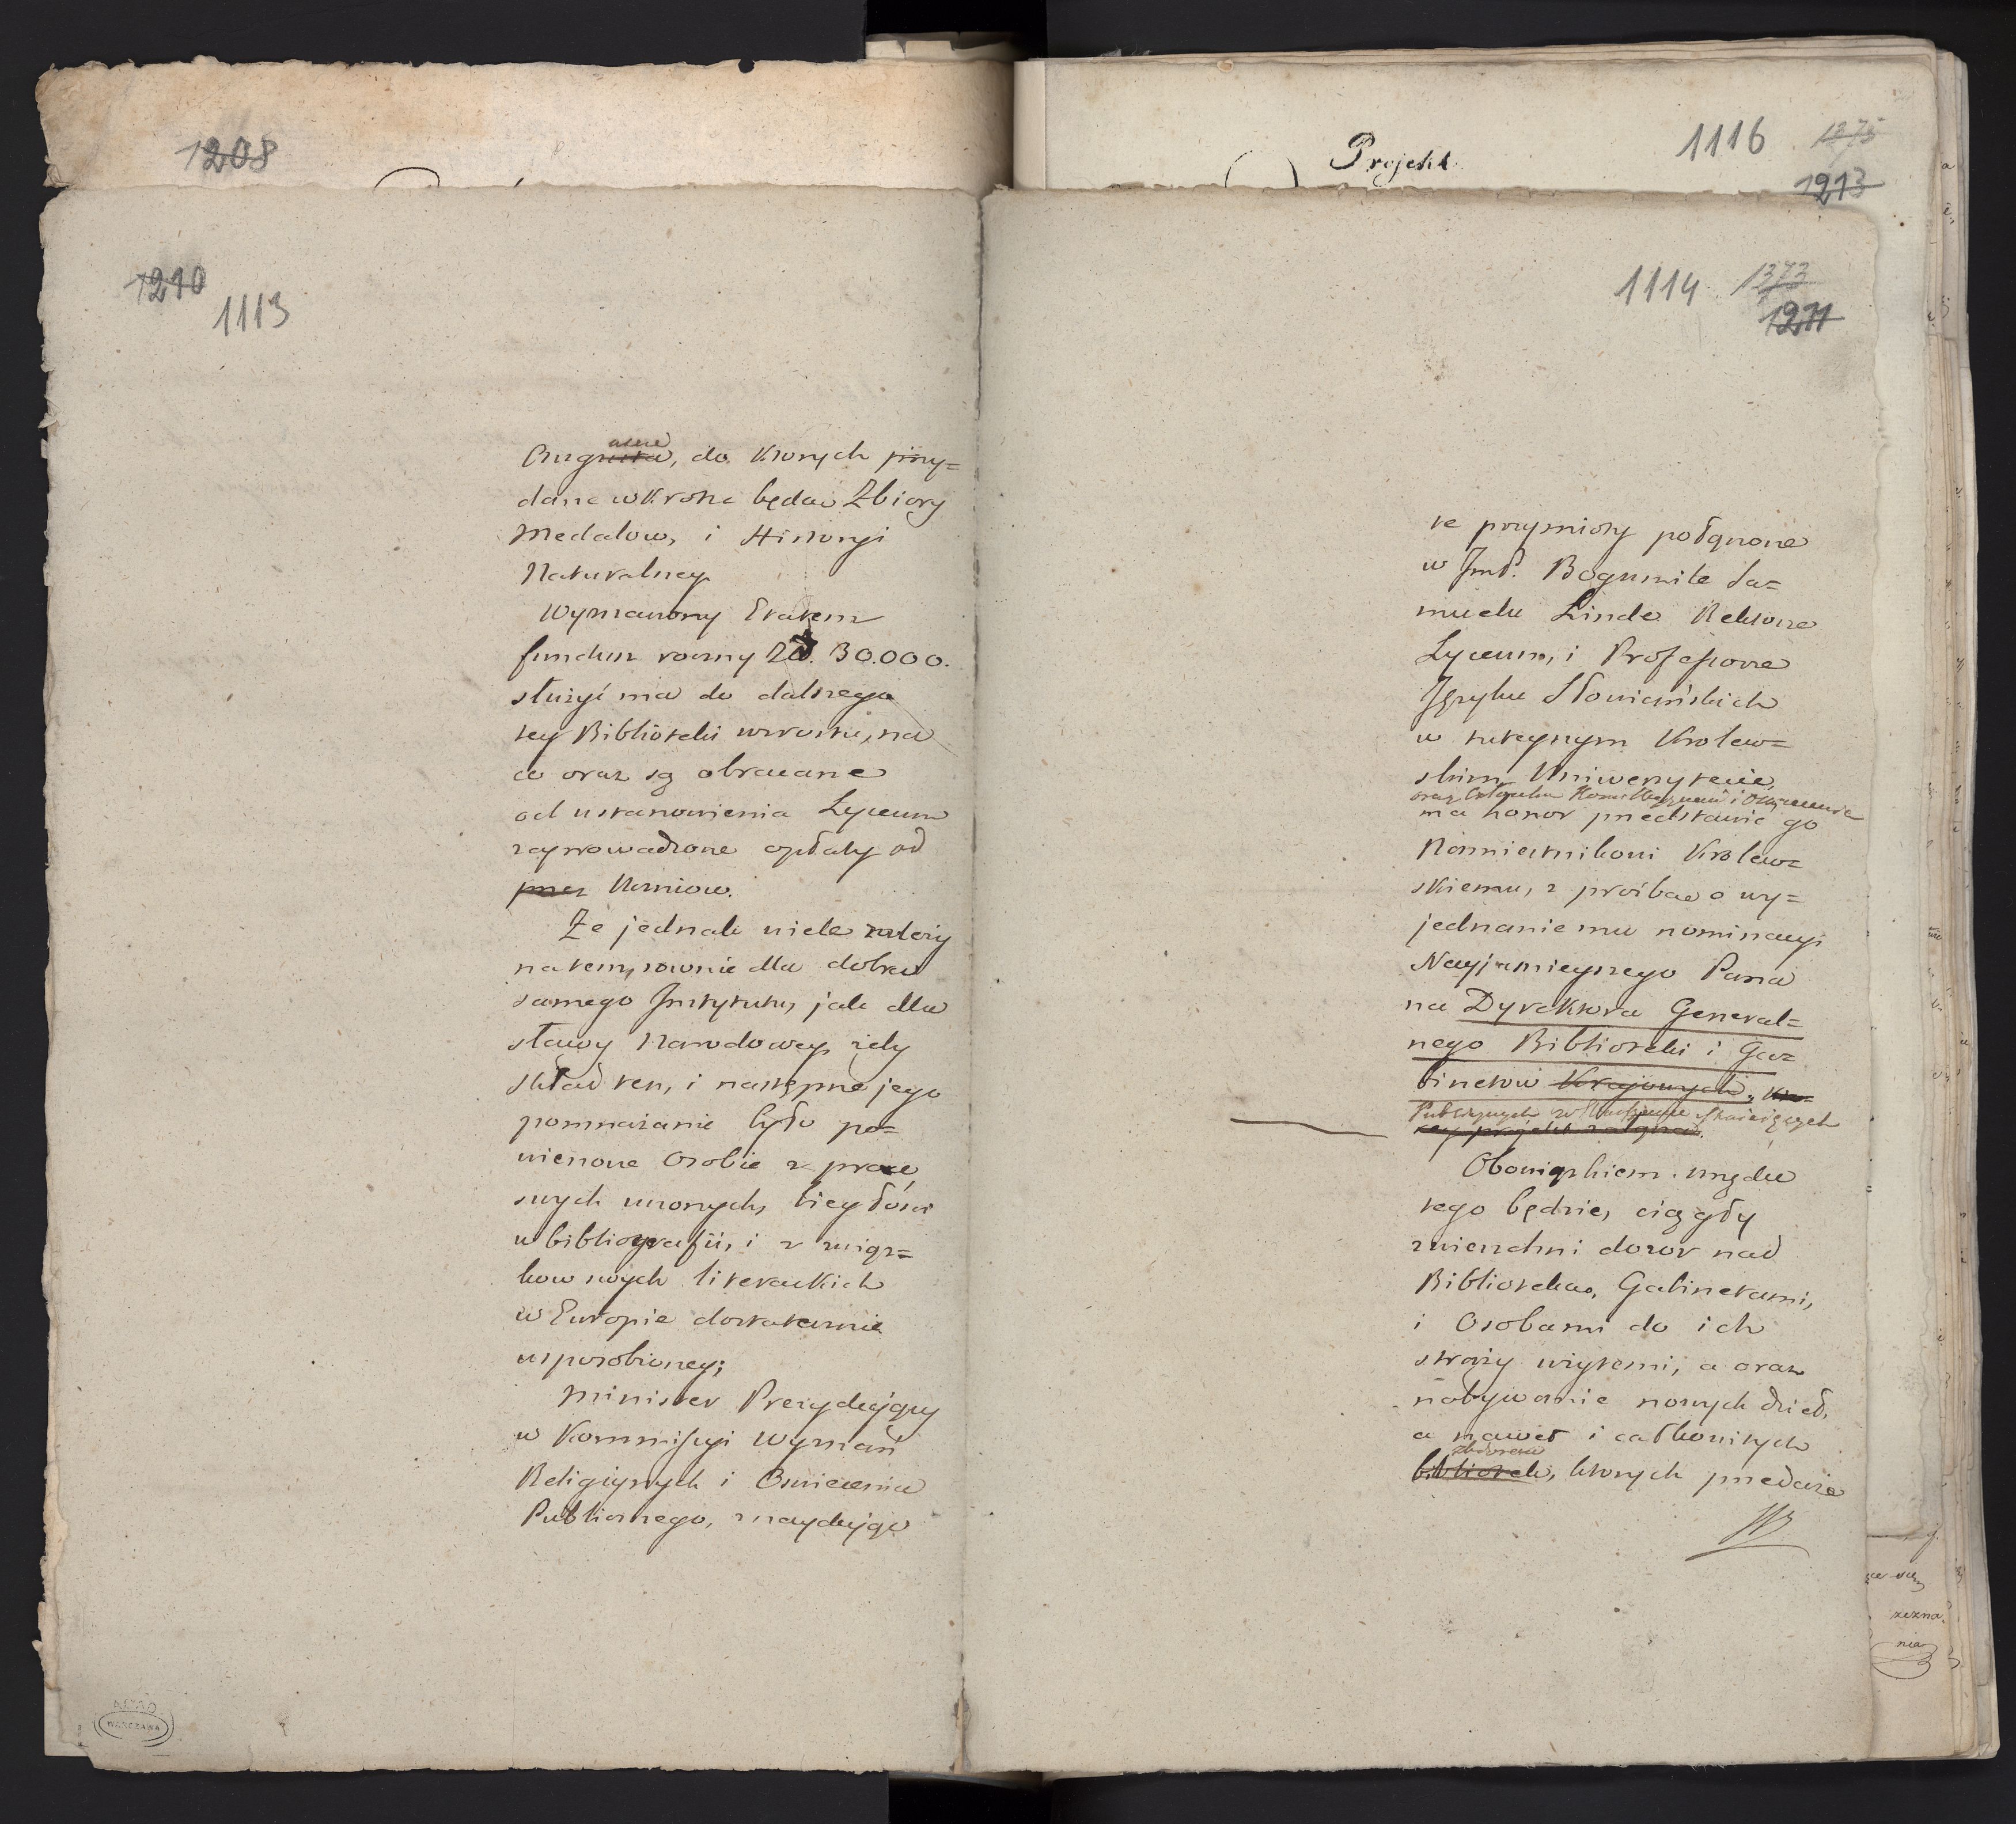 1208
1210
1113
asow
Augusta, do ktorych przy=
dane wkrotce będą Zbiory
Medalow, i Historyi
Naturalney.
Wyznaczony Etatem
fundusz roczny Zł. 30.000.
służyć ma do dalszego
tey Biblioteki wzrostu, na
co oraz są obracane
od ustanowienia Lyceum
zaprowadzone opłaty od
przez Uczniow.
Że jednak wiele zależy
na tem, rownie dla dobra
samego Instytutu, jak dla
sławy Narodowey, żeby
skład ten, i następne jego
pomnażanie było po=
wierzone Osobie z prac
swych uczonych, biegłości
w bibliografii, i z związ=
kow swych literackich
w Europie dostatecznie
usposobioney;
Minister Prezydujący
w Kommissyi Wyznań
Religiynych i Oświecenia
Publicznego, znaydując
WARSZAWA
Projekt
1116 1375
1213
1114 1373
1211
te przymioty połączone
w JmP. Bogumile Sa=
muelu Linde Rektorze
Lyceum, i Professorze
Języków Słowiańskich
w tuteyszym Krolew=
skim Uniwersytecie,
oraz Członku Kom: Wyznań i Oświecenia
ma honor przedstawić go
Namiestnikowi Krolew=
skiemu, z prośbą o wy=
jednanie mu nominacyi
Nayjaśnieyszego Pana
na Dyrektora General=
nego Biblioteki i Ga=
binetow Krajowych,
Publicznych w Stolicy
Obowiązkiem urzędu
tego będzie, ciągły
zwierzchni dozor nad
Biblioteką, Gabinetami,
i Osobami do ich
straży użytemi, a oraz
nabywanie nowych dzieł,
a nawet i całkowitych
zbiorow
bibliotek, ktorych przedaże
zezna
nia